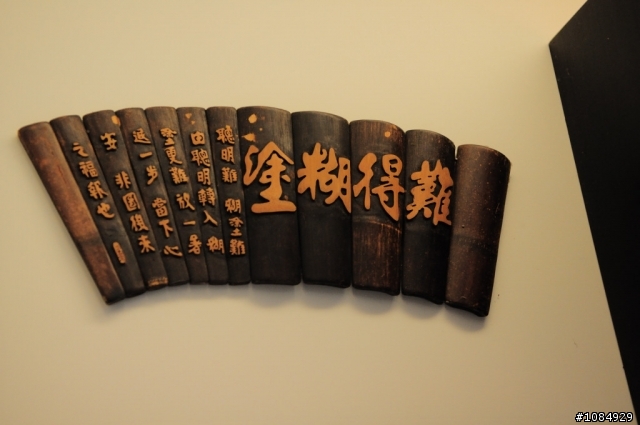 難得糊塗
聰明難 糊塗難
由聰明轉入糊
塗更難 放一著
退一步 當下心
安 非圖後來
之福報也
#1084929